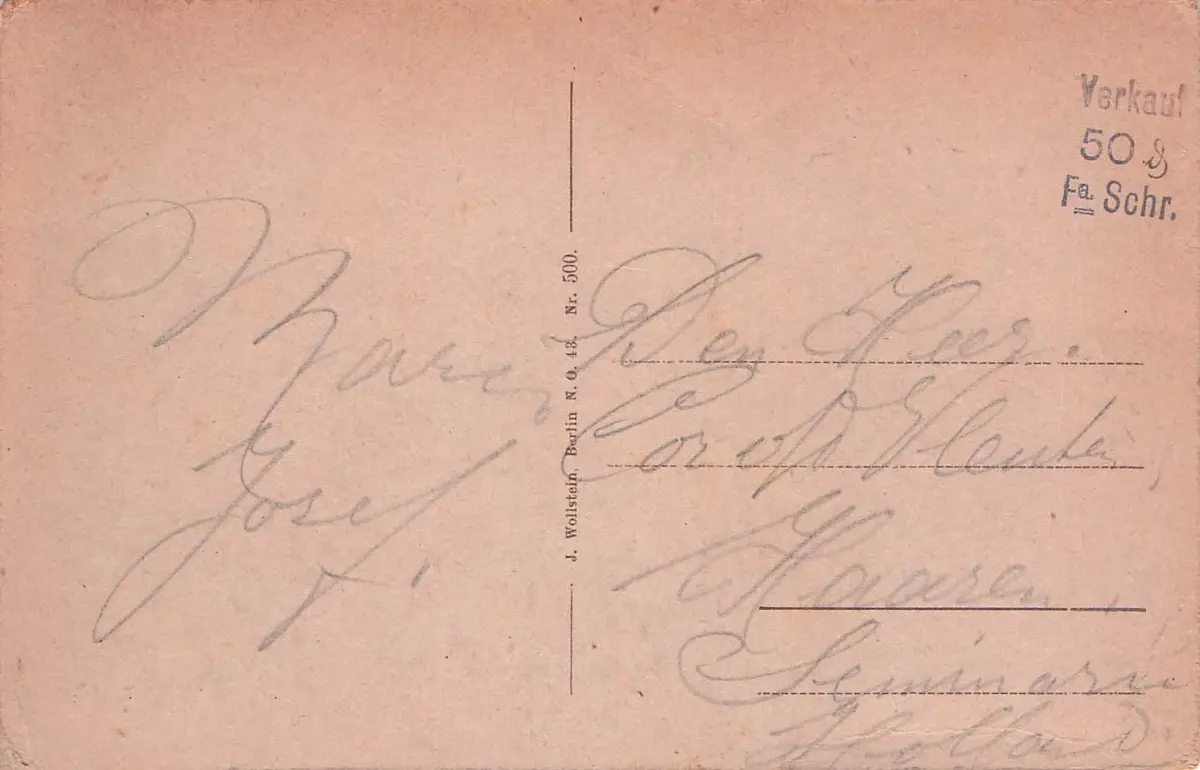 Verkauf
50 ₰
Fa Schr.
Josef
J. Wollstein, Berlin N. O. 43. Nr. 500.
Den Heer.
Haaren,
Seminarie
Holland